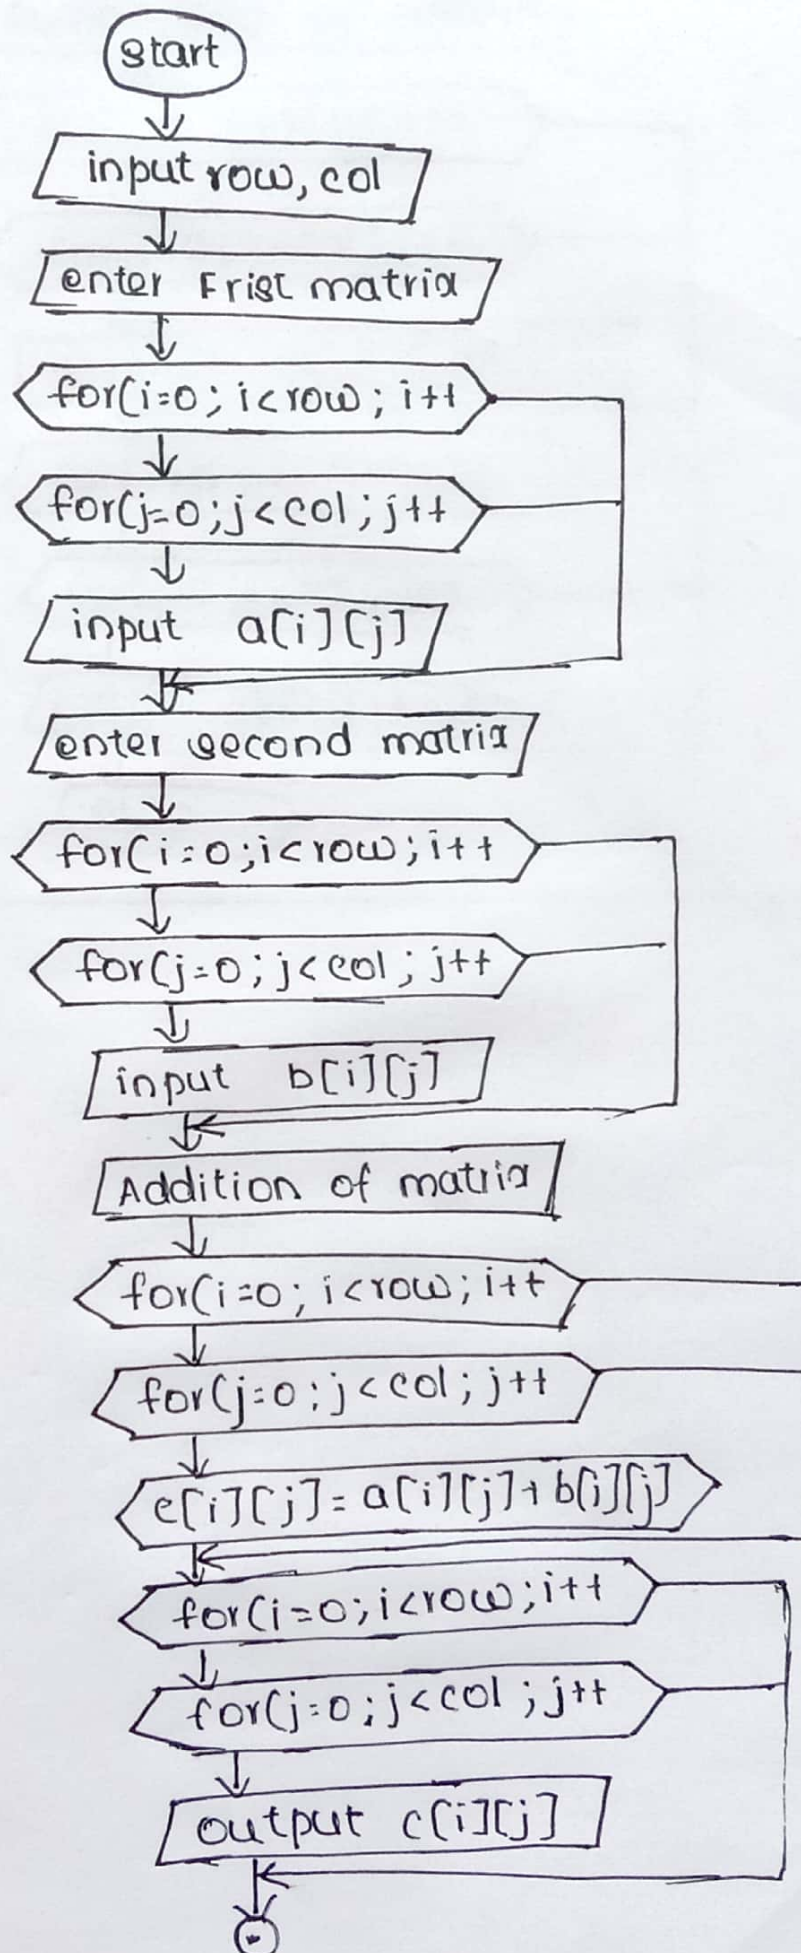 start
input row, col
enter Frist matrix
for(i=0; i<row; i++
for(j=0; j<col; j++
input a[i][j]
enter second matrix
for(i=0; i<row; i++
for(j=0; j<col; j++
input b[i][j]
Addition of matrix
for(i=0; i<row; i++
for(j=0; j<col; j++
c[i][j] = a[i][j] + b[i][j]
for(i=0; i<row; i++
for(j=0; j<col; j++
output c[i][j]